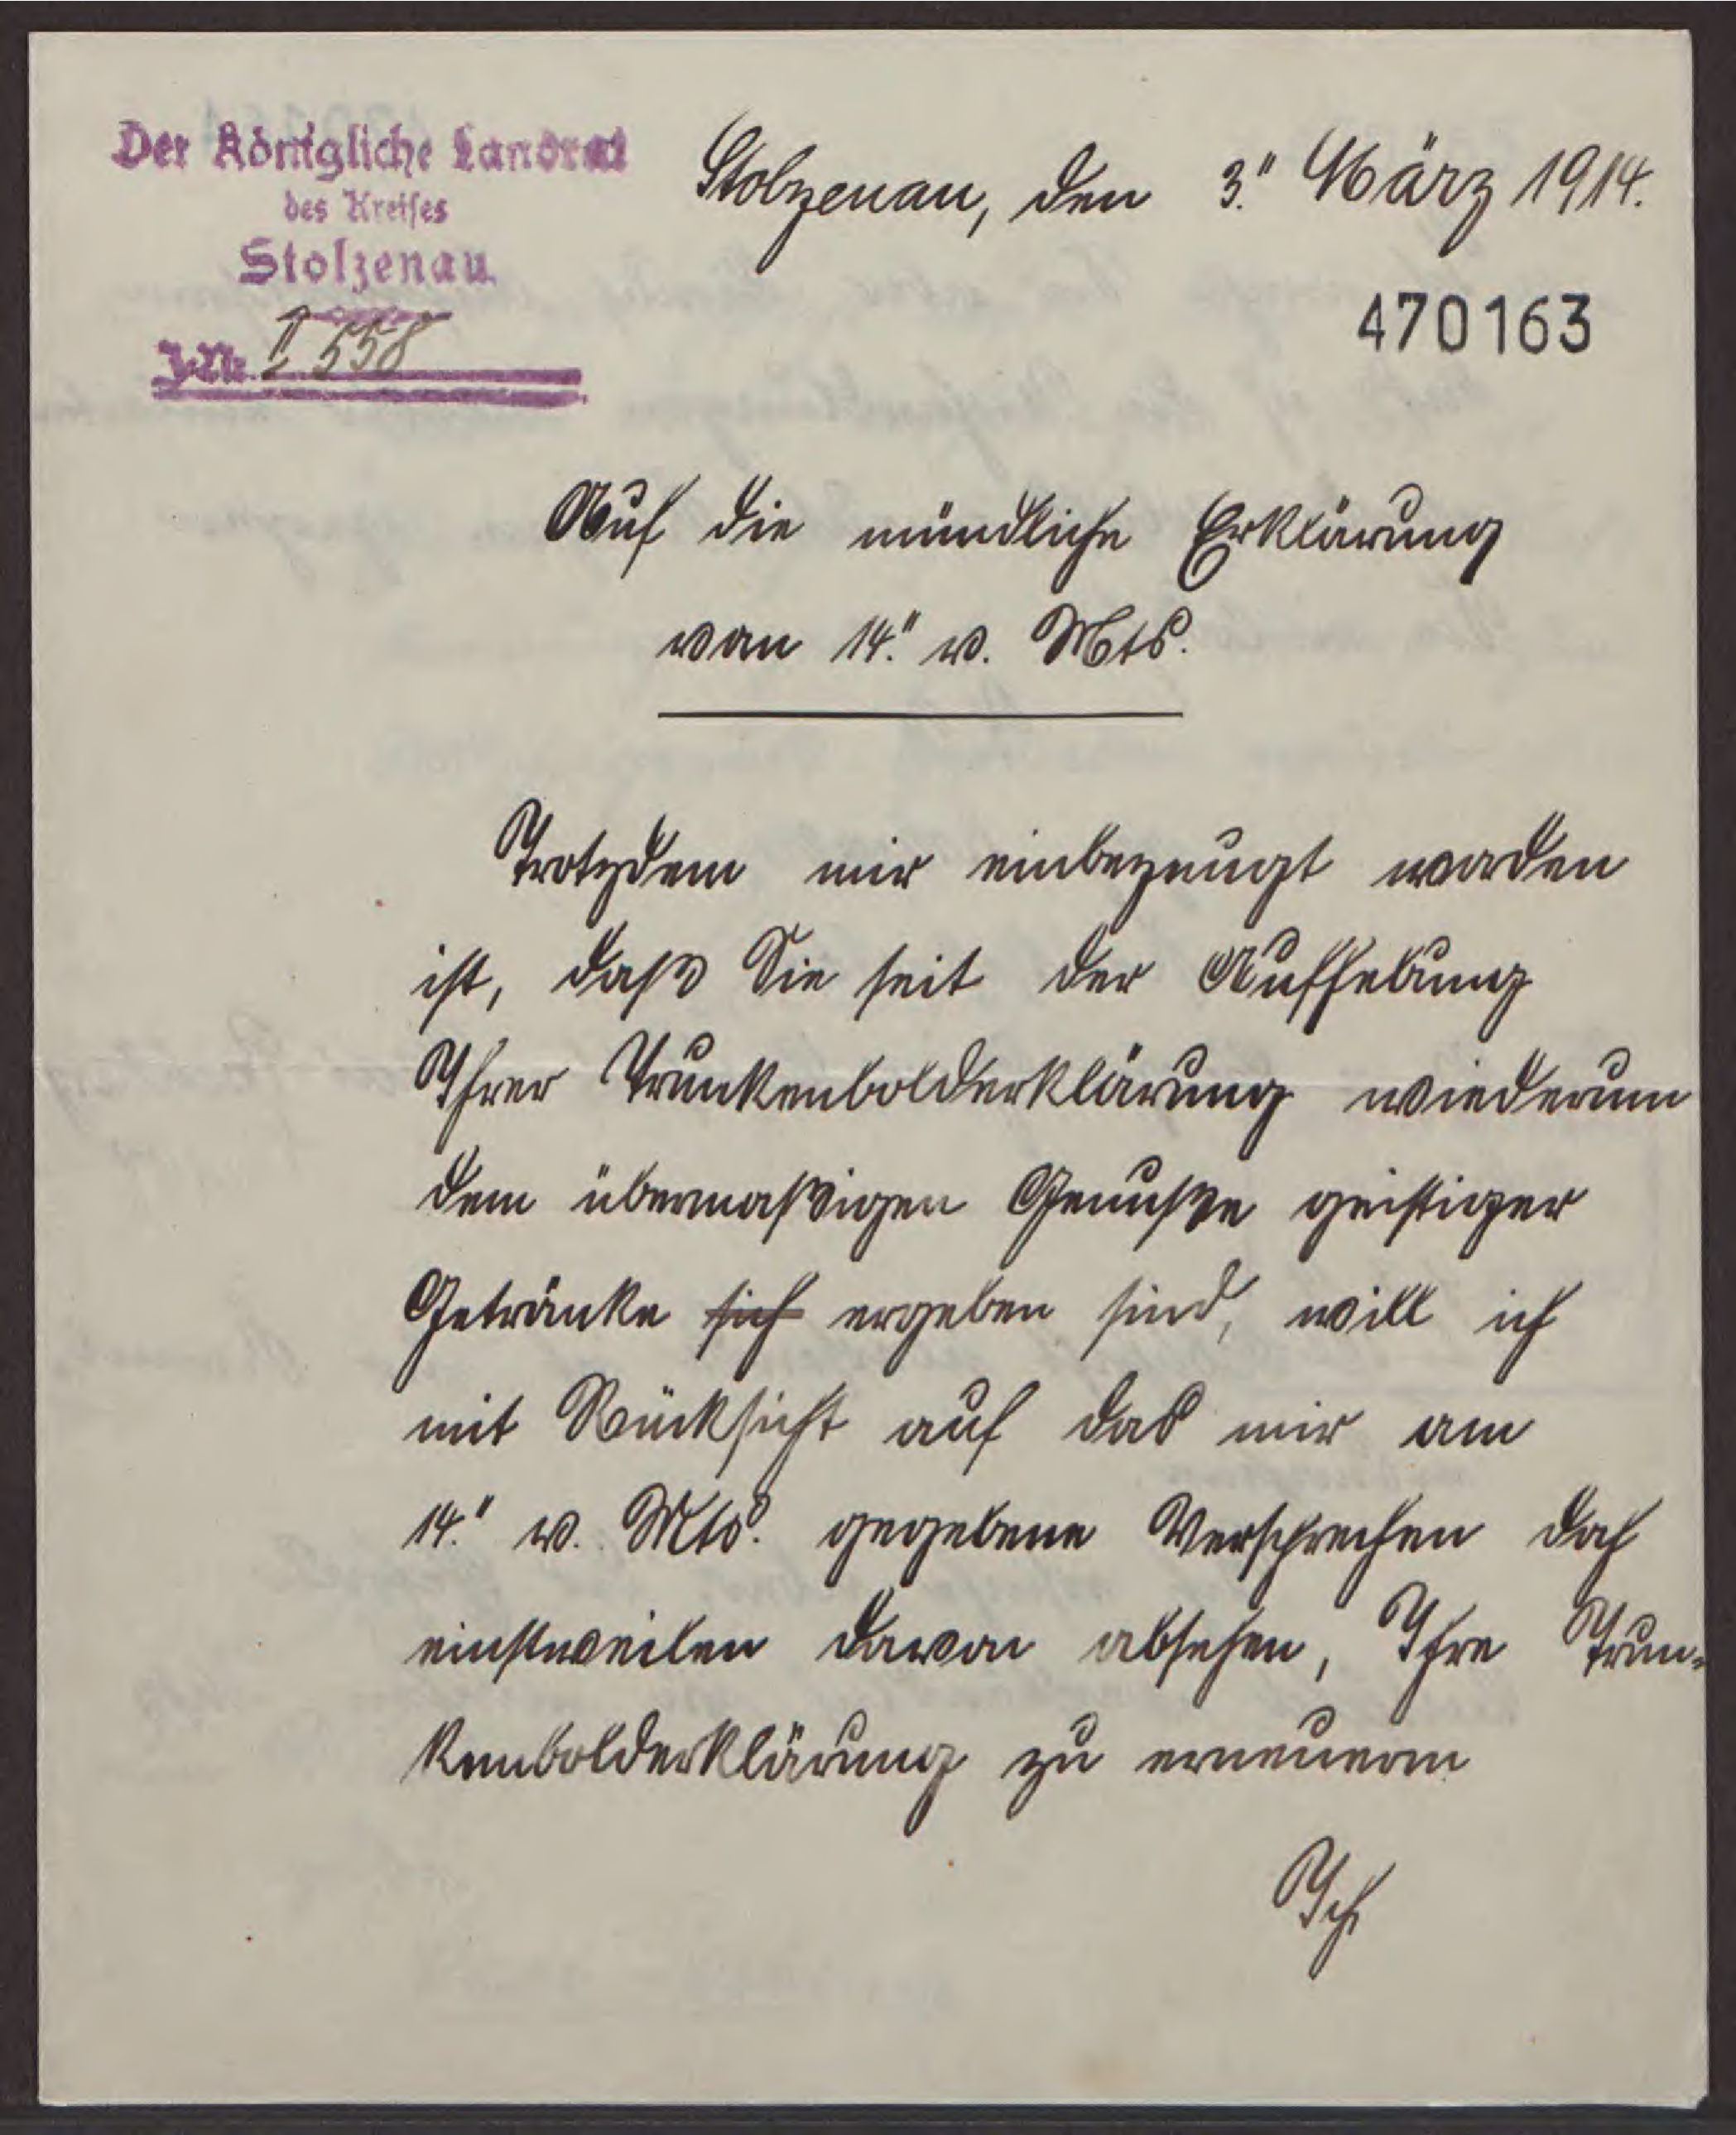 Der Königliche Landrat
des Kreises
Stolzenau.
J.-Nr. I 558
Stolzenau, den 3.'' März 1914.
470163
Auf die mündliche Erklärung
von 14.'' v. Mts.
Trotzdem mir einbezeugt worden
ist, daß Sie seit der Aufhebung
Ihrer Trunkenbolderklärung wiederum
dem übermaßigen Genuße geistiger
Getränke sich ergeben sind, will ich
mit Rücksicht auf das mir am
14.'' v. Mts. gegebene Versprechen doch
einstweilen davon absehen, Ihre Trun-
kenbolderklärung zu erneuern
Ich